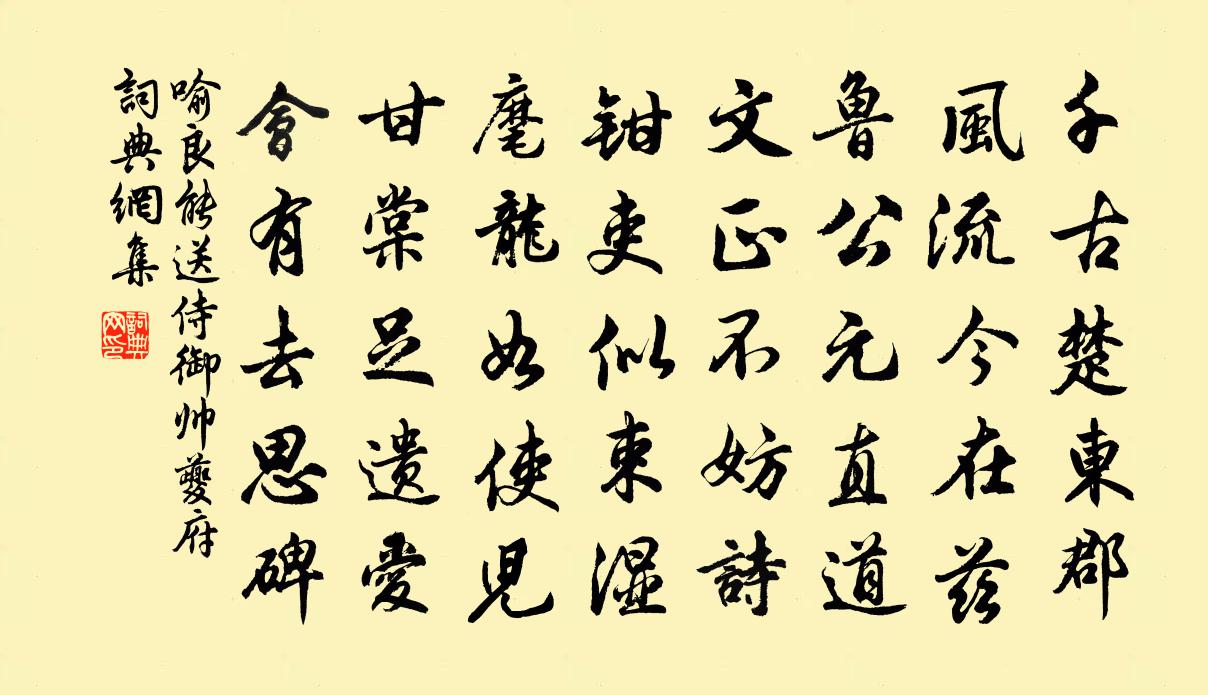 千古楚東郡
風流今在茲
魯公元直道
文正不妨詩
鉗吏似束濕
麾龍如使兒
甘棠足遺愛
會有去思碑
喻良能送侍御帥夔府
詞典網集
詞典網印